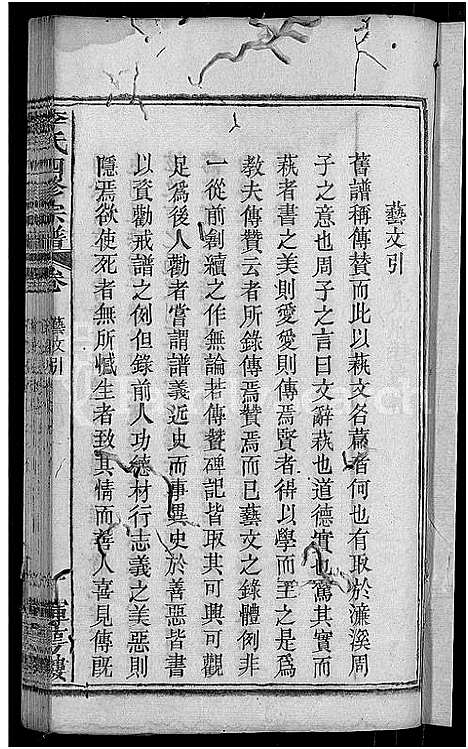 藝文引
舊譜稱傳贊而此以萟文名蓋者何也有取於濂溪周
子之意也周子之言曰文辭萟也道德實也篤其實而
萟者書之美則愛愛則傳焉賢者得以學而至之是爲
教夫傳贊云者所錄傳焉贊焉而已藝文之錄體例非
一從前創續之作無論若傳贊碑記皆取其可興可觀
足爲後人勸者嘗謂譜義近史而事異史於善惡皆書
以資勸戒譜之例但錄前人功德材行志義之美惡則
隱焉欲使死者無所憾生者致其情而善人喜見傳旣
李氏四修宗譜
卷
藝文引